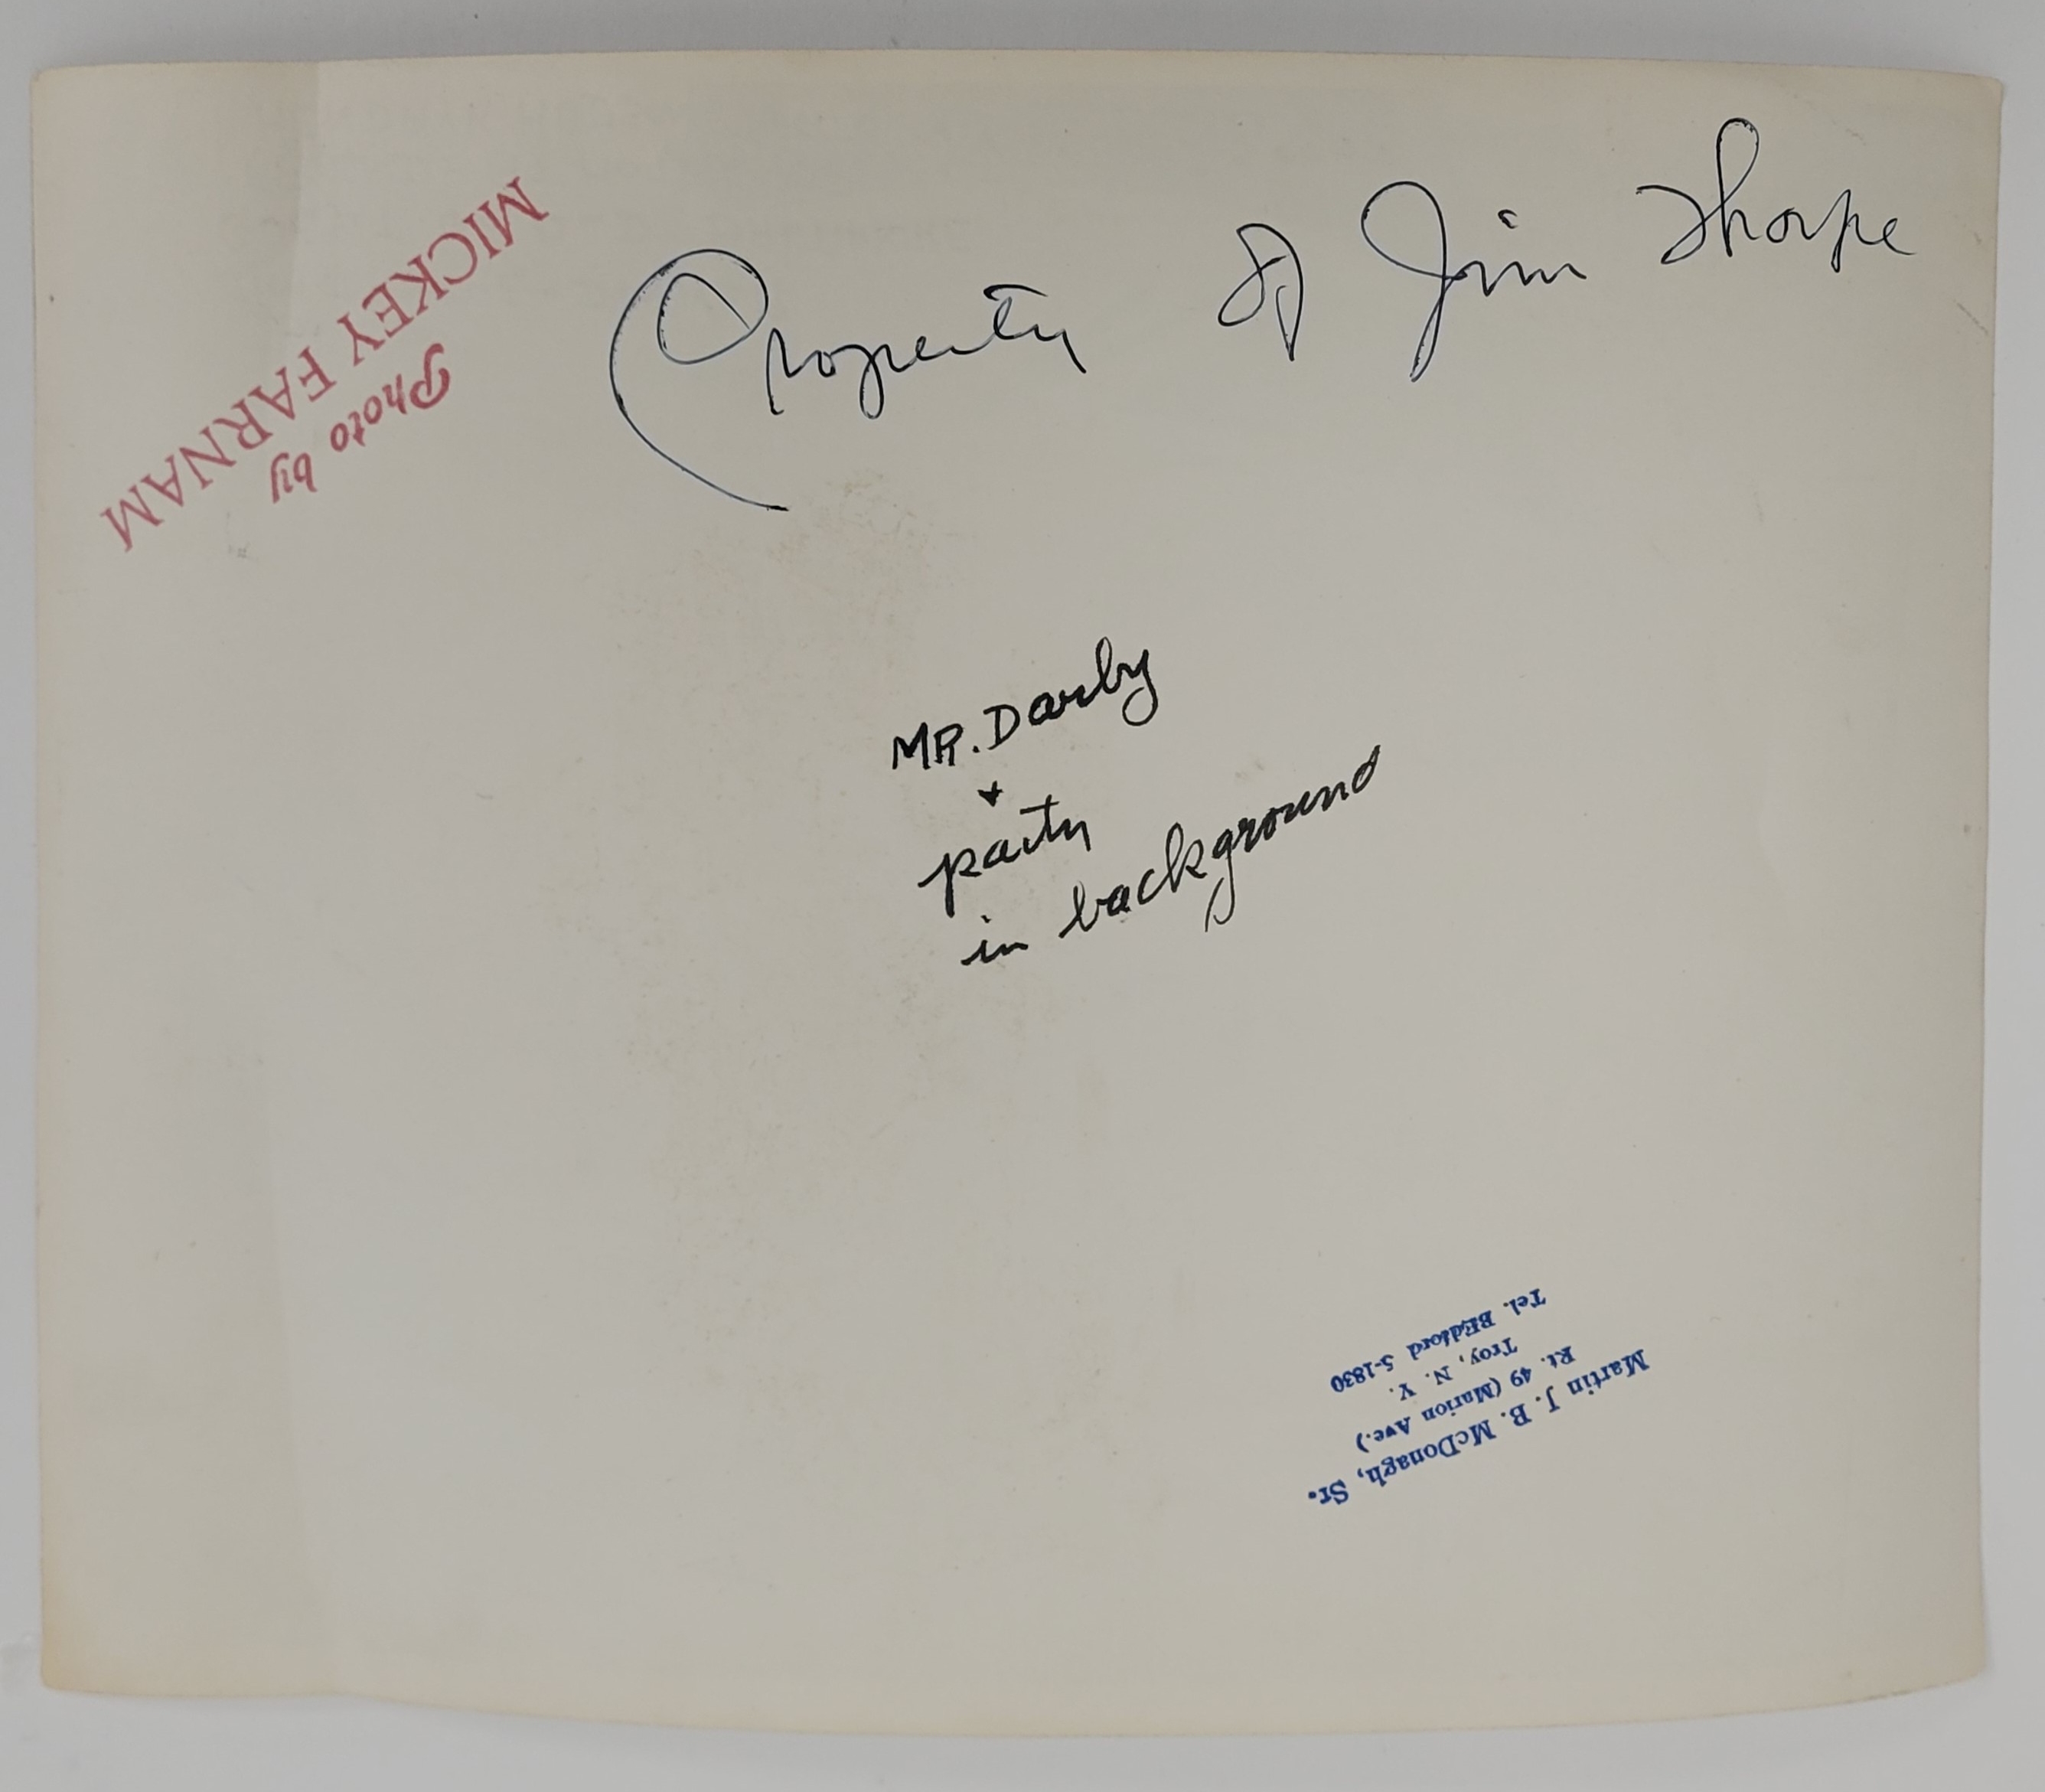 Property of Jim Thorpe
Photo by
MICKEY FARNAM
MR. Darby
+
party
in background
Martin J. B. McDonagh, Sr.
Rt. 49 (Marion Ave.)
Troy, N. Y.
Tel. BEdford 5-1830